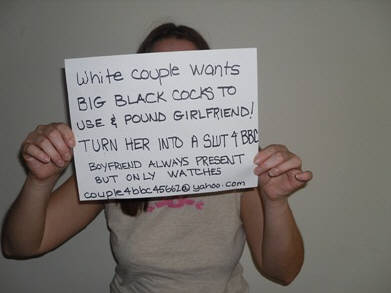 White Couple Wants
BIG BLACK COCKS TO
USE & POUND GIRLFRIEND!
TURN HER INTO A SLUT 4 BBC
BOYFRIEND ALWAYS PRESENT
BUT ONLY WATCHES
couple4bbc45662@yahoo.com